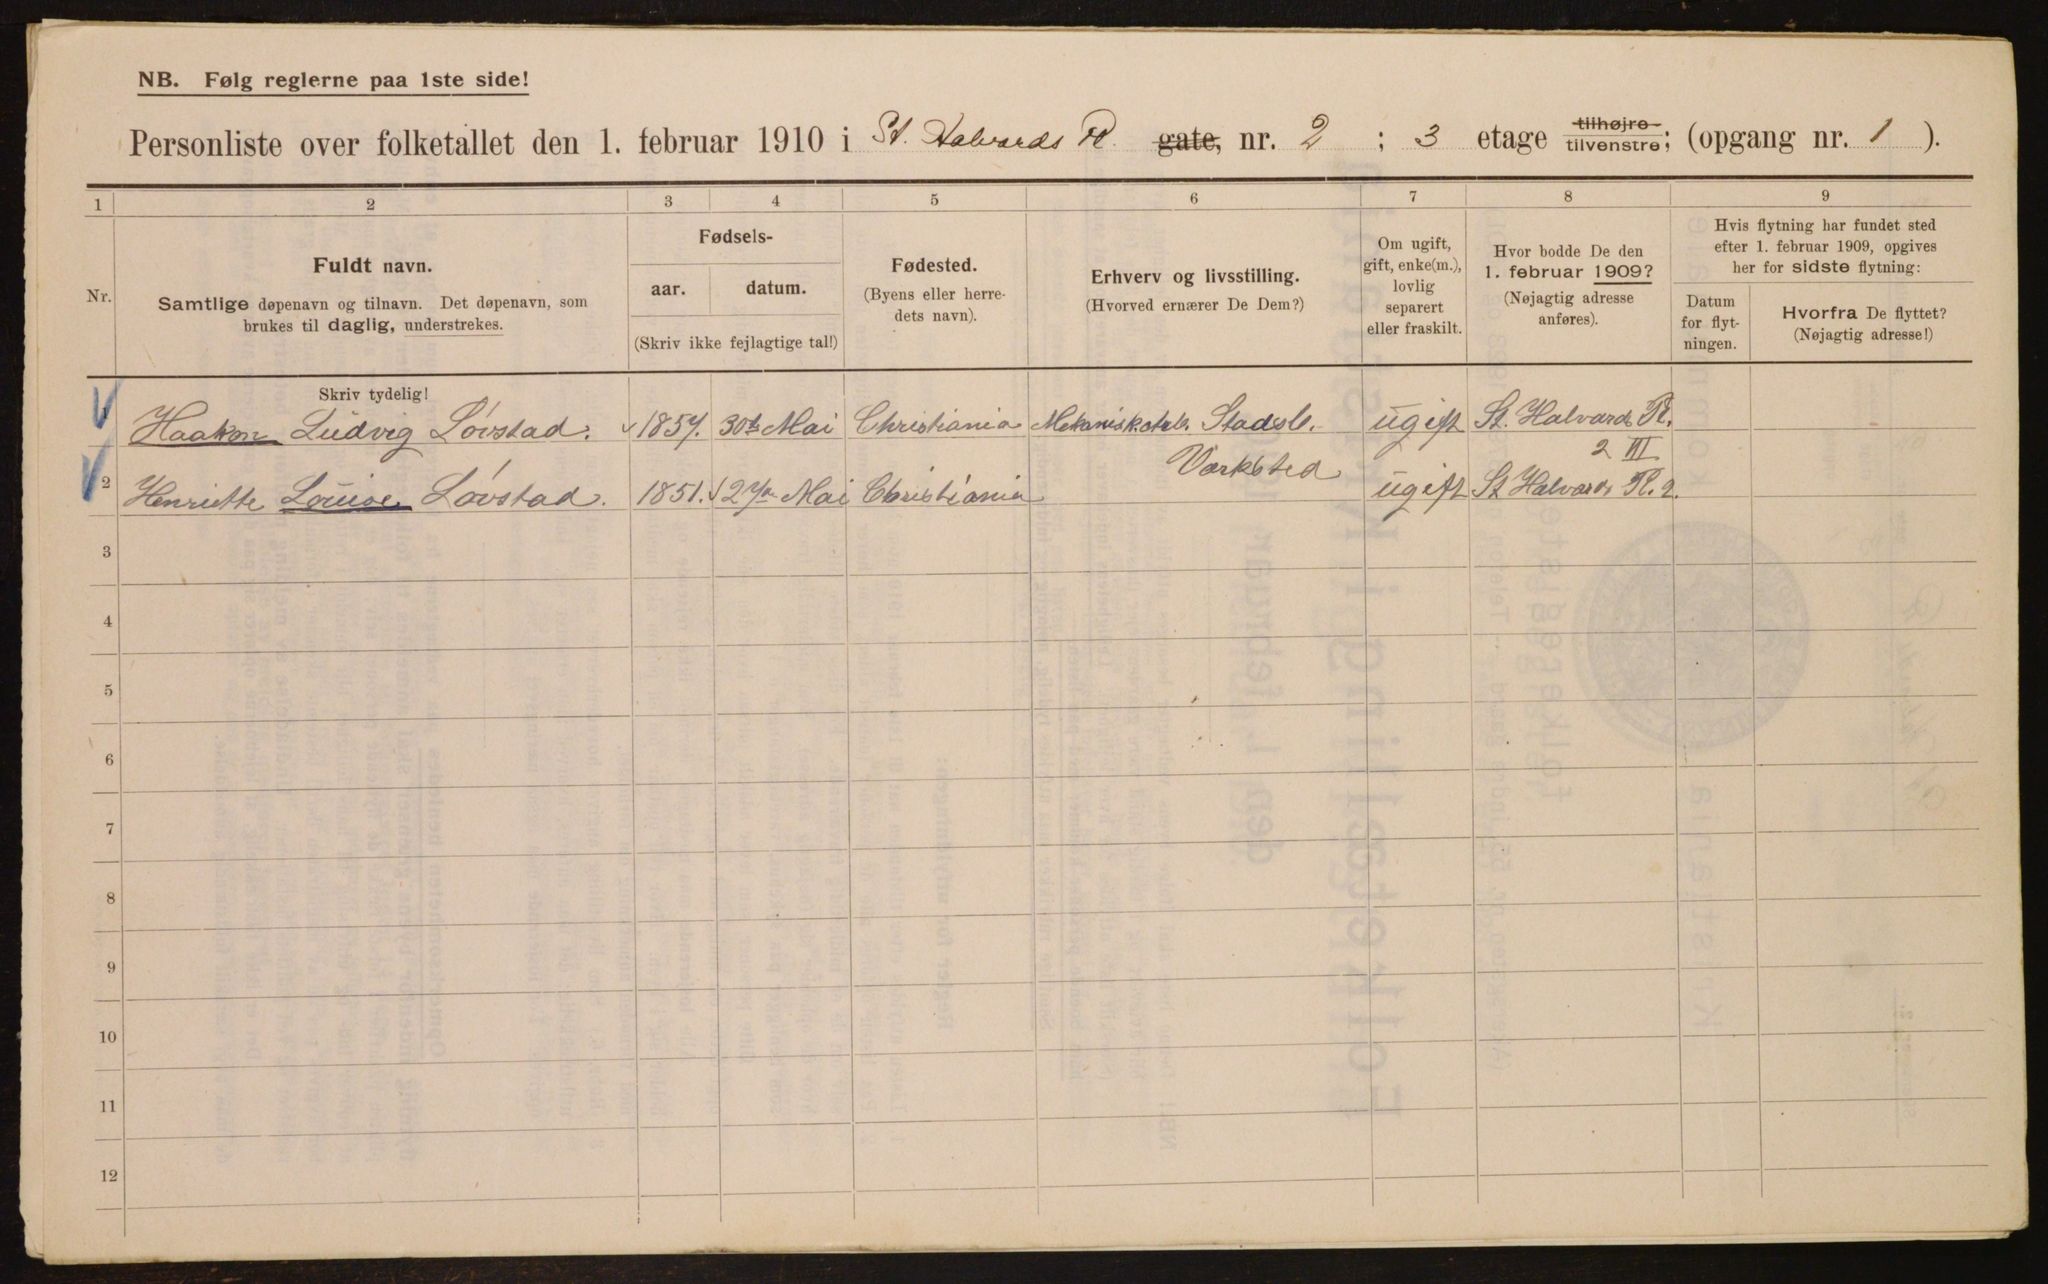 NB. Følg reglerne paa 1ste side!
Personliste over folketallet den 1. februar 1910 i St. Halvards Pl. gate, nr. 2 ; 3 etage tilhøjre tilvenstre; (opgang nr. 1 ).
1 2 3 4 5 6 7 8 9
Nr.
Fuldt navn.
Samtlige døpenavn og tilnavn. Det døpenavn, som
brukes til daglig, understrekes.
Fødsels-
aar. datum.
(Skriv ikke fejlagtige tal!)
Fødested.
(Byens eller herre-
dets navn).
Erhverv og livsstilling.
(Hvorved ernærer De Dem?)
Om ugift,
gift, enke(m.),
lovlig
separert
eller fraskilt.
Hvor bodde De den
1. februar 1909?
(Nøjagtig adresse
anføres).
Hvis flytning har fundet sted
efter 1. februar 1909, opgives
her for sidste flytning:
Datum
for flyt-
ningen.
Hvorfra De flyttet?
(Nøjagtig adresse!)
Skriv tydelig!
1 Haakon Ludvig Lövstad. 1857. 30te Mai Christiania Mekanisk. Stadsb. ugift St. Halvards Pl.
Værksted 2 III
2 Henriette Louise Lövstad. 1851. Mai Christiania ugift St Halvards Pl. 2.
3
4
5
6
7
8
9
10
11
12